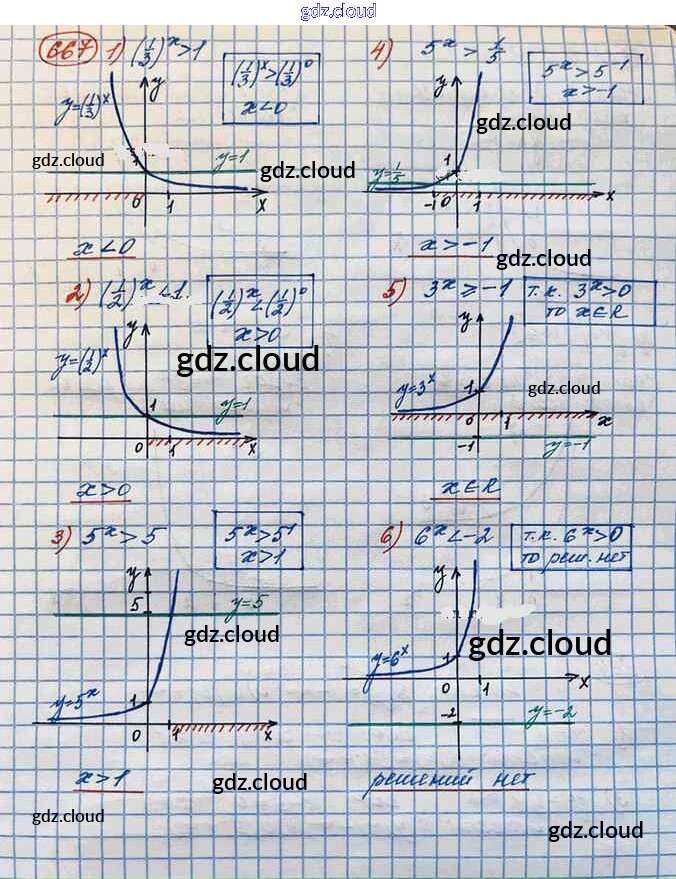 gdz.cloud
667 1) (1/3)^x > 1
(1/3)^x > (1/3)^0
x < 0
y=(1/3)^x
y
gdz.cloud
y=1
0 1 x
x < 0
4) 5^x > 1/5
5^x > 5^-1
x > -1
y
gdz.cloud
gdz.cloud
y=1/5
1
-1 0 1 x
x > -1
gdz.cloud
2) (1/2)^x < 1.
(1/2)^x < (1/2)^0
x > 0
y
y=(1/2)^x
gdz.cloud
1 y=1
0 1 x
x > 0
5) 3^x ≥ -1
т.к. 3^x > 0
то x ∈ R
y
y=3^x
1
gdz.cloud
0 1 x
-1 y=-1
x ∈ R
3) 5^x > 5
5^x > 5^1
x > 1
y
5 y=5
gdz.cloud
y=5^x
1
0 1 x
x > 1
gdz.cloud
gdz.cloud
6) 6^x < -2
т.к. 6^x > 0
то реш. нет
y
gdz.cloud
y=6^x
1
0 1 x
-2 y=-2
решений нет
gdz.cloud